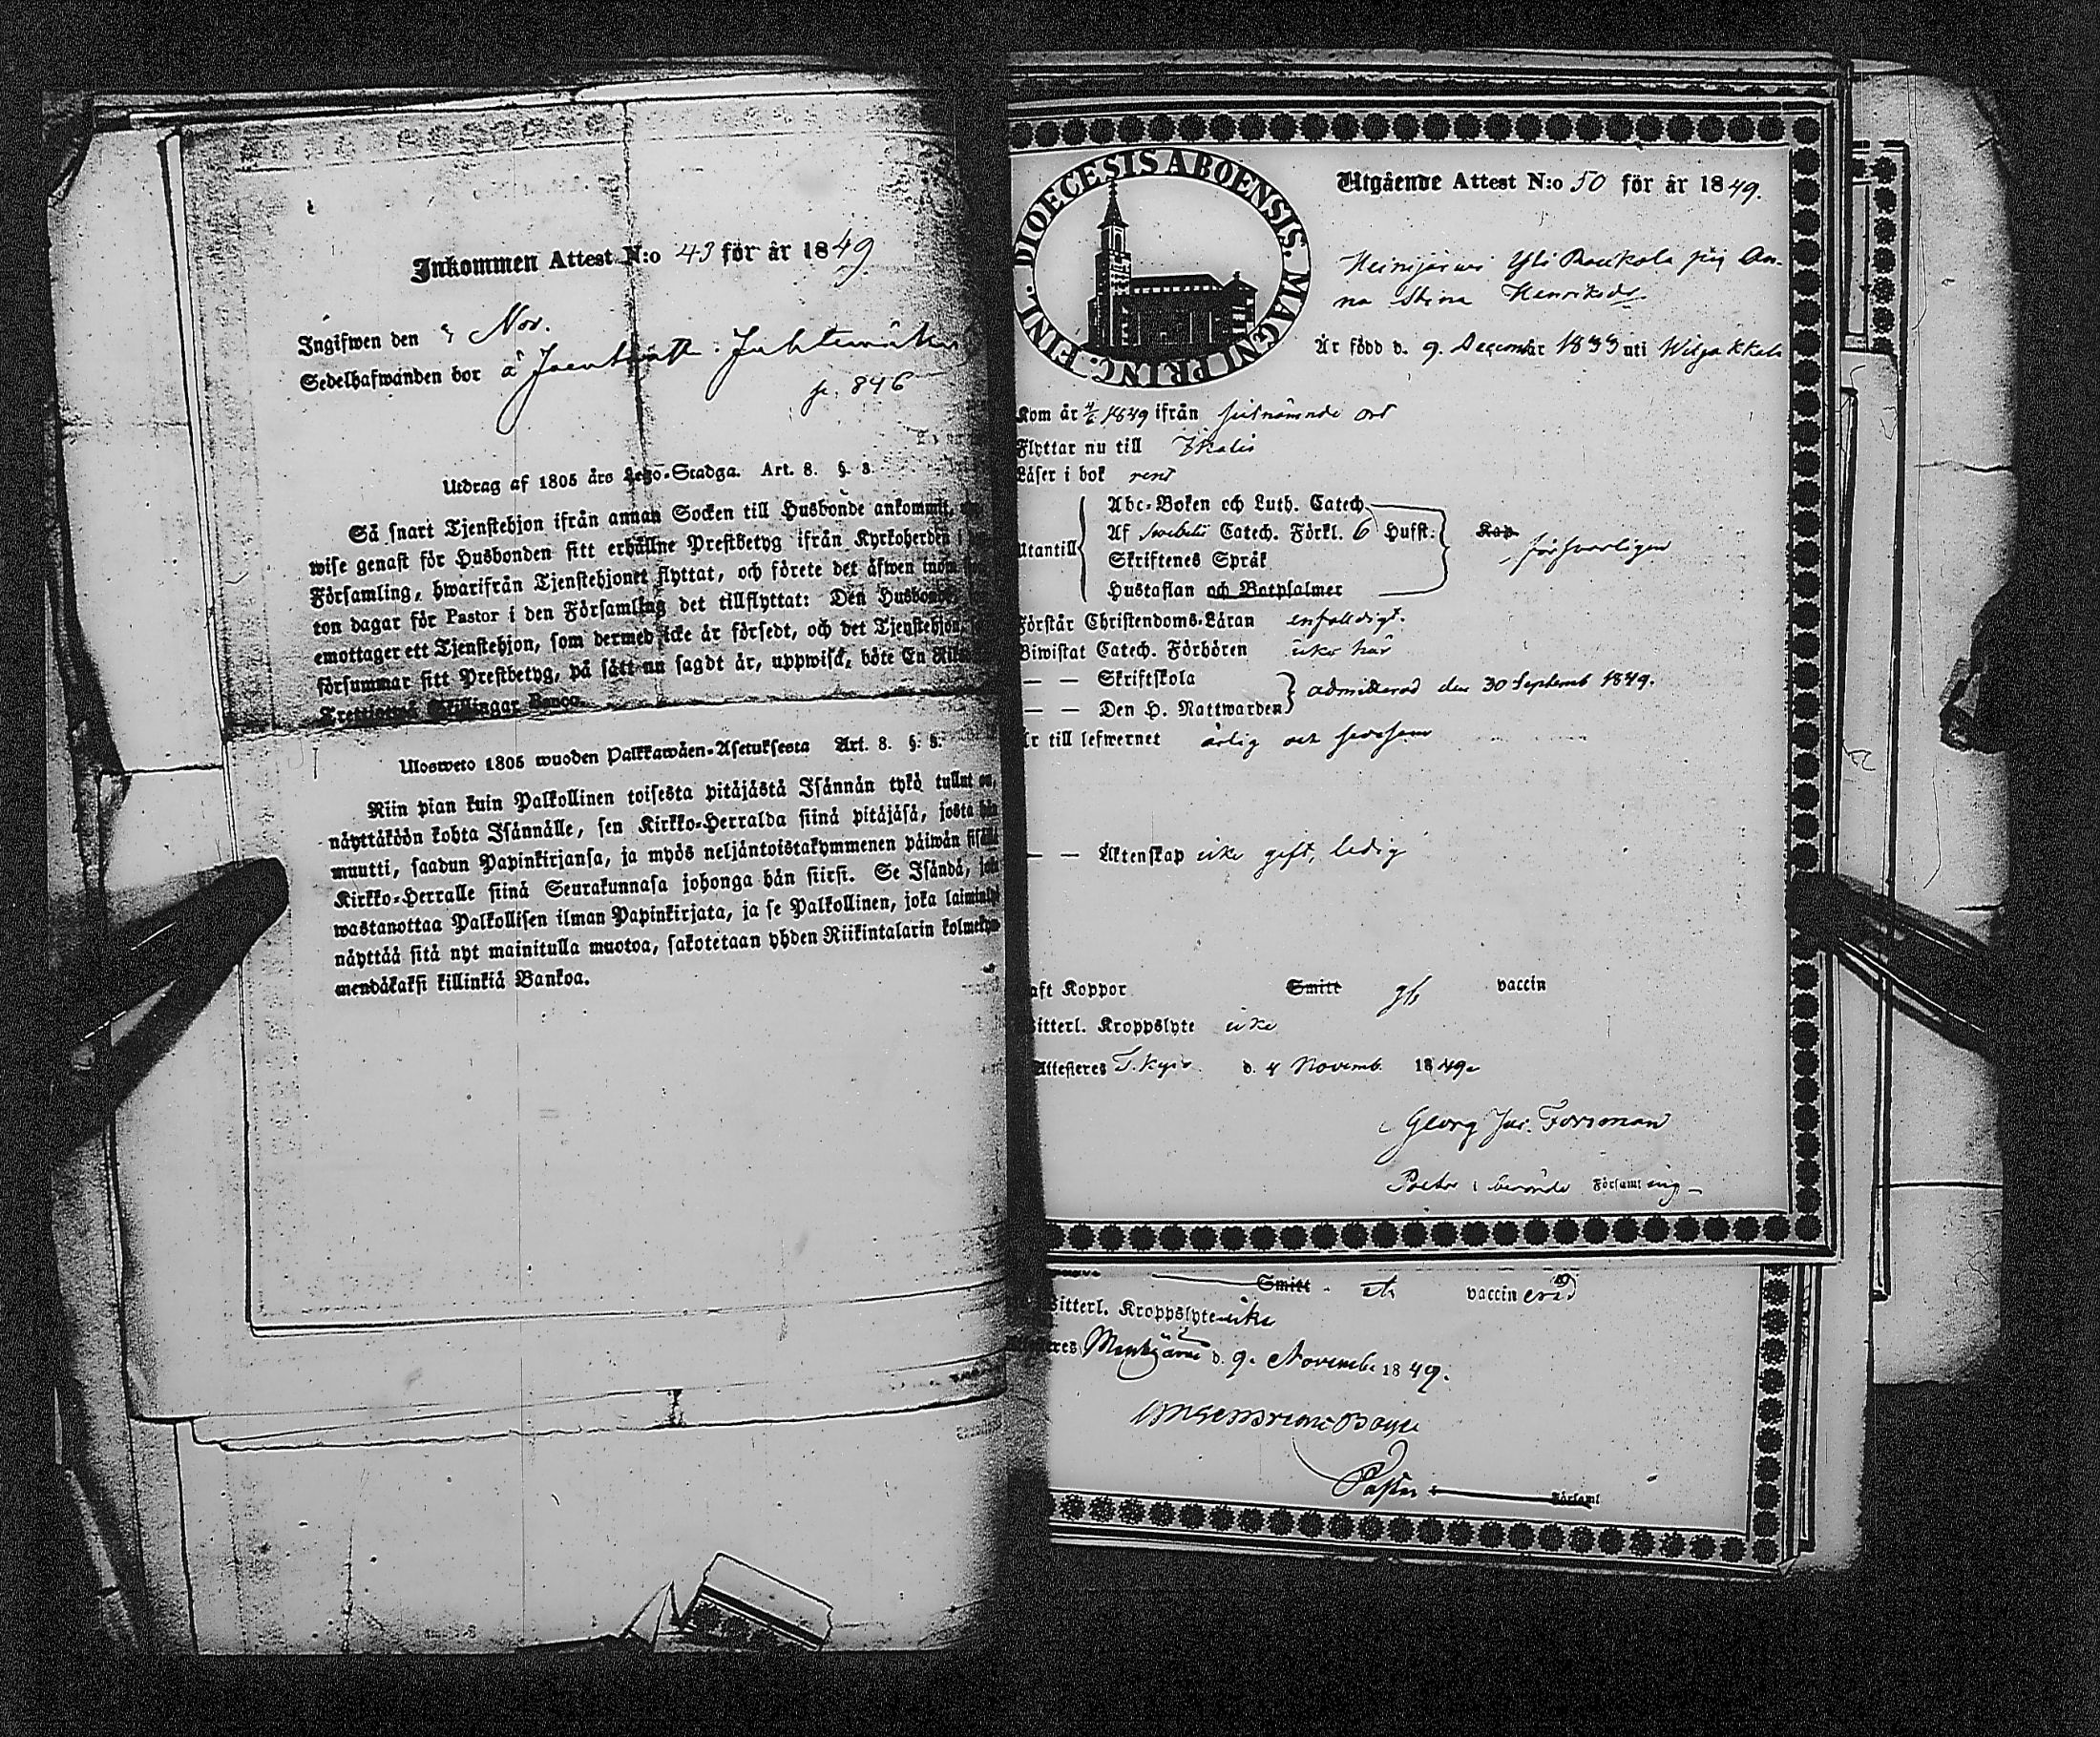 Inkommen Attest N:o 43 för år 1849
Ingifwen den 9 Nov.
Sedelhafwanden bor å
p. 846
Utdrag af 1805 års Lego-Stadga. Art. 8. §. 8.
Så snart Tjenstehjon ifrån annan Socken till Husbonde ankommit,
wise genast för Husbonden sitt erhållne Prestbetyg ifrån Kyrkoherden i
Församling, hwarifrån Tjenstehjonet flyttat, och förete det äfwen inom
ton dagar för Pastor i den Församling det tillflyttat: Den Husbonde,
emottager ett Tjenstehjon, som dermed icke är försedt, och det Tjenstehjon,
försummar sitt Prestbetyg, på sätt nu sagdt är, uppwisa, böte En
Trettiotwå Skillingar Banco.
Ulosweto 1805 wuoden Palkkawäen-Asetuksesta Art. 8. §. 8.
Niin pian kuin Palkollinen toisesta pitäjästä Isännän tykö tullut on,
näyttäköön kohta Isännälle, sen Kirkko-Herralda siinä pitäjäsä, josta hän
muutti, saadun Papinkirjansa, ja myös neljäntoistakymmenen päiwän sisällä
Kirkko-Herralle siinä Seurakunnasa johonga hän siirsi. Se Isändä, joka
wastanottaa Palkollisen ilman Papinkirjata, ja se Palkollinen, joka laiminlyö
näyttää sitä nyt mainitulla muotoa, sakotetaan yhden Riikintalarin kolmekym-
mendäkaksi killinkiä Bankoa.
FINL. DIOECESIS ABOENSIS. MAGNI PRINC.
Utgående Attest N:o 50 för år 1849.
Heinijärwi Yli Raukola pig An-
na Stina Henriksdr
Är född d. 9. December 1833 uti Wiljakkala
Kom år 1849 ifrån sistnämnde ort
Flyttar nu till Ikalis
Läser i bok rent
Utantill
Abc-Boken och Luth. Catech.
Af Svebelii Catech. Förkl. 6 Hufst.
Skriftenes Språk
Hustaflan och Botpsalmer
Kap
försvarligen
Förstår Christendoms-Läran enfaldigt.
Biwistat Catech. Förhören icke här
— — Skriftskola
— — Den H. Nattwarden
admitterad den 30 Septemb 1849.
Är till lefwernet ärlig och
— — Äktenskap icke gift, ledig
Haft Koppor Smitt gh vaccin
Witterl. Kroppslyte icke
Attesteres T.kyro d. 4 Novemb. 1849.
Georg Jac. Forsman
Pastor i berörde Församling
Smitt vaccinerad
Witterl. Kroppslyte icke
d. 9. November 1849.
Pastor Församl